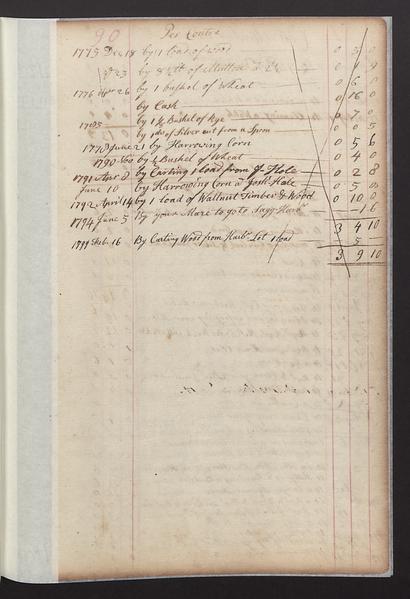 90 Per Contra
1775 Dec 18 by 1 load of wood 0 5 0
23 by 8 ½ lb of Mutton 0 1 9
1776 Apr 26 by 1 bushel of Wheat 0 6 0
by Cash 0 16 0
1785 by 1 ½ Bushel of Rye 0 7 0
by 1 of Silver out from a Spoon 0 0 5
1778 June 21 by Harrowing Corn 0 5 6
1790 by ½ Bushel of Wheat 0 4 0
1791 Apr 8 by Carting 1 load from ye Hole 0 2 8
June 10 by Harrowing Corn a Josh. Hale 0 5 0
1792 April 14 by 1 load of Wallnut Timber & Wood 0 10 0
1794 June 5 By your Mare to go to Sagg Harbr 1 6
3 4 10
1799 Feb. 16 By Carting Wood from Lot 1 load 5
3 9 10